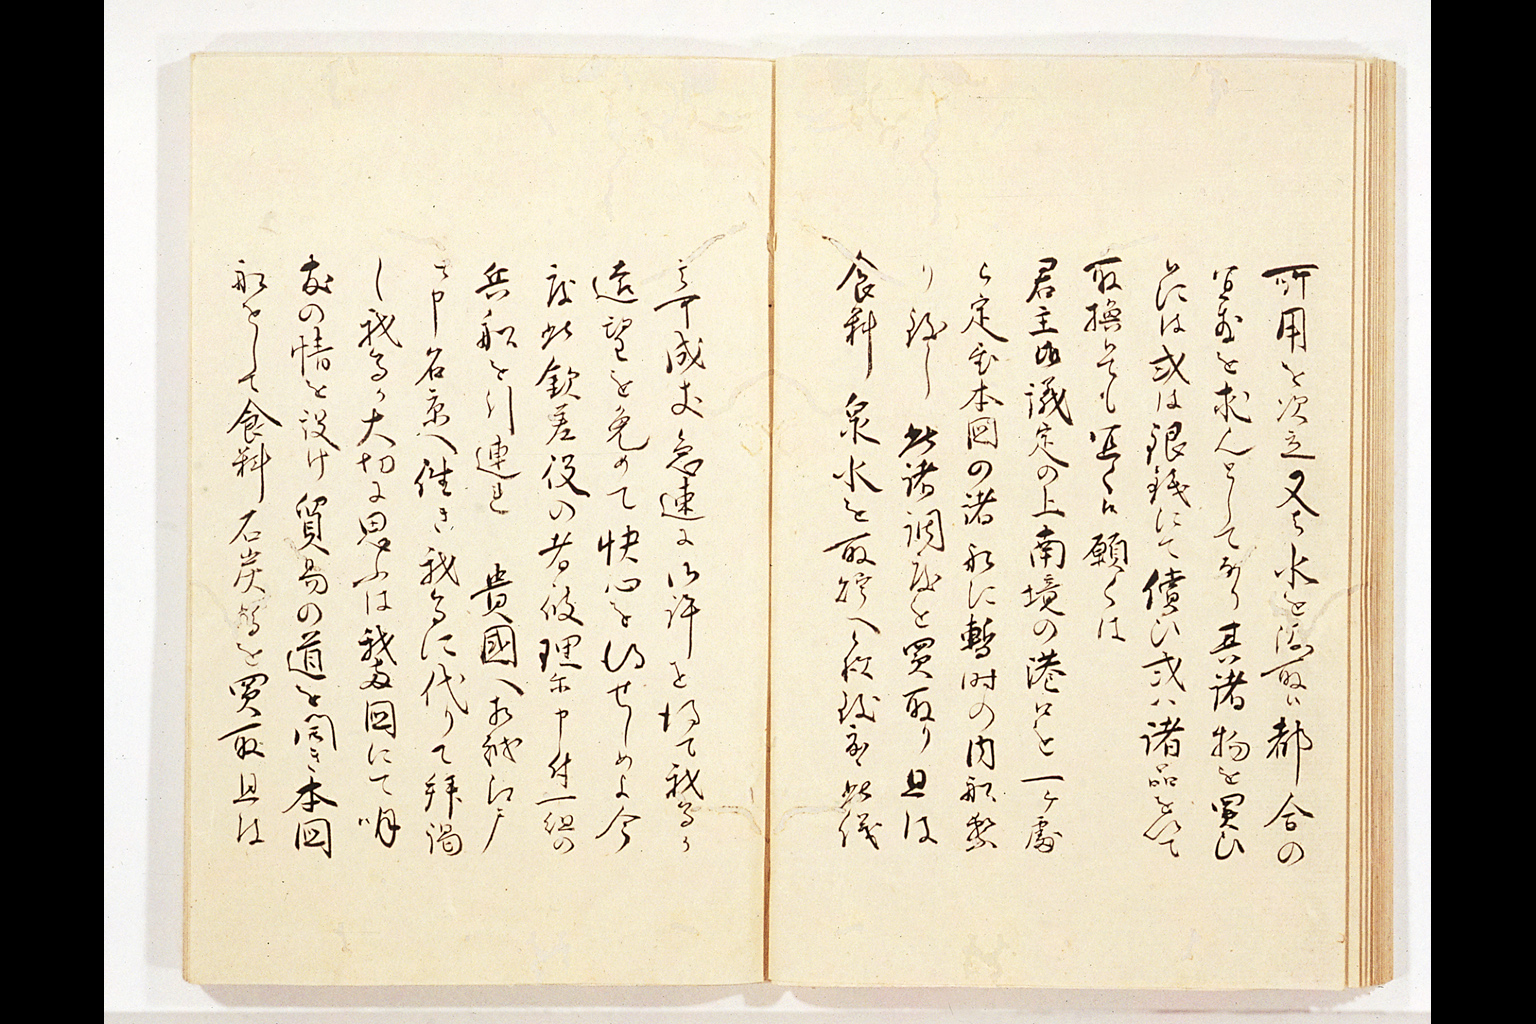 所用を次立又は水を汲取ハ都合の
宜敷を求んとして也其諸物を買ひ
には或は銀銭にて償ひ或ハ諸品を以て
取換とも宜く候願くは
君主御議定の上南境の港口を一ケ處
定本国の諸船に暫時の内船繋
り致し此諸調度を買取り且は
食料泉水を取 へ 致 此儀
可成丈急速に御許を得て我等か
遠望を免めて快心を得せしめよ今
度此欽差役の者彼理に申付一組の
兵船を引連れ貴國へ相越江戸
と申名京へ往き我等に代りて拝謁
し我等か大切に思ふは我両国にて明
友の情を設け貿易の道を開き本国
船をして食料石炭等を買取且は